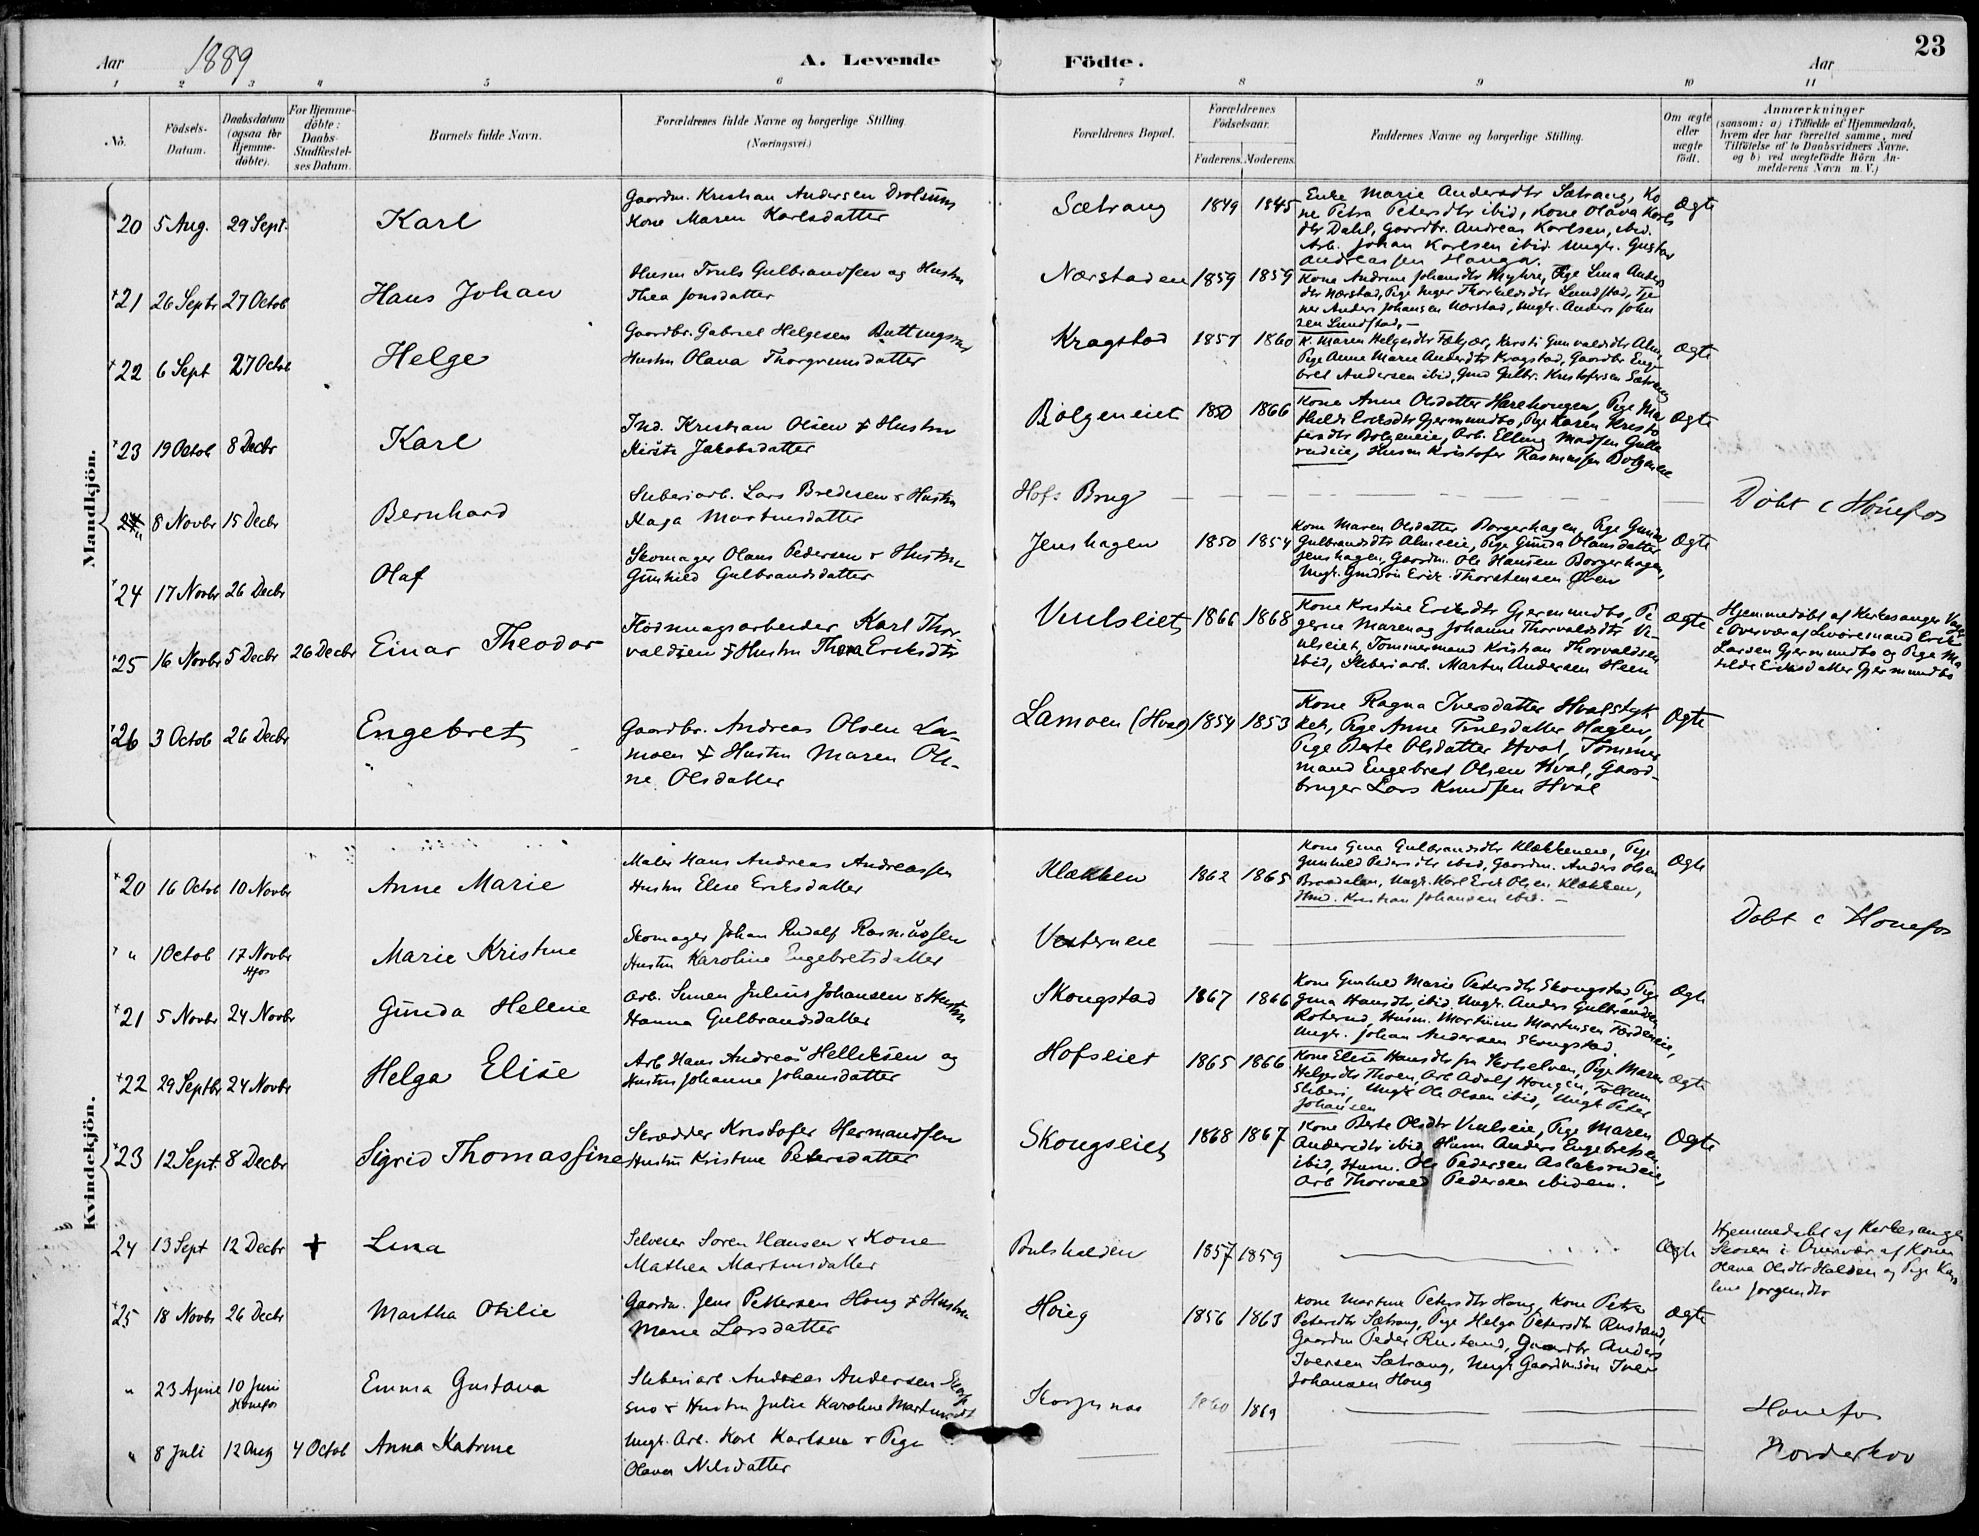 Aar 1889 A. Levende Födte. Aar 23
1 2 3 4 5 6 7 8 9 10 11
No.
Födsels-
Datum.
Daabsdatum
(ogsaa for
Hjemme-
døbte).
For Hjemme-
døbte:
Daabs-
Stadfestel-
ses Datum.
Barnets fulde Navn.
Forældrenes fulde Navne og borgerlige Stilling.
(Næringsvei.)
Forældrenes Bopæl.
Forældrenes
Födselsaar.
Faderens. Moderens.
Faddernes Navne og borgerlige Stilling.
Om ægte
eller
uægte
født.
Anmærkninger
(saasom: a) i Tilfælde af Hjemmedaab,
hvem der har forrettet samme, med
Tilføielse af to Daabsvidners Navne.
og b) ved uægtefødte Børn An-
melderens Navn m. V.)
Mandkjön.
20 5 Aug. 29 Sept. Karl
Gaardm. Kristian Andersen Drolsum
Kone Maren Karlsdatter
Sætrang 1849 1845
Enke Marie Andersdtr Sætrang, Ko
ne Petra Petersdtr ibid, Kone Olava Karls
dtr Dahl, Gaardbr. Andreas Karlsen, ibid.
Arb. Johan Karlsen ibid. Ungk. Gustav
Andreassen Houga.
Ægte
21 26 Septr 27 Octob Hans Johan
Husm Truls Gulbrandsen og Hustru
Thea Jonsdatter
Nærstadeie 1859 1859
22 6 Sept 27 Octob Helge
Gaardbr. Gabriel Helgesen
Hustru Olava Thorgrimsdatter
Kragstad 1857 1860
Ægte
23 19 Octob 8 Decbr Karl
Ind. Kristian Olsen & Hustru
Kirsti Jakobsdatter
Bolgeneiet 1850 1866
Kone Anne Olsdatter Harehougen, Pige Ma
thilde Eriksdtr Gjermundbo, Pige Karen Kristo
fersdtr Bolgeneie, Arb. Elling Madssen Gulle
rudeie, Husm Kristofer Rasmussen Bolgeneie
Ægte
8 Novbr 15 Decbr Bernhard
Sliberiarb. Lars Bredesen & Hustru
Kaja Martinsdatter
Hofs Brug
Döbt i Hönefos
24 17 Novbr 26 Decbr Olaf
Skomager Olaus Pedersen & Hustru
Gunhild Gulbrandsdatter
Jenshagen 1850 1854
Kone Maren Olsdatter Borgerhagen, Pige Gunda
Gulbrandsdtr Almeie, Pige Gunda Olausdatter
Jenshagen, Gaardm. Ole Hansen Borgerhagen,
Ungk. Gmdsön Erik Thorstensen Oven
Ægte
25 16 Novbr 5 Decbr 26 Decbr Einar Theodor
Flödningsarbeider Karl Thor-
valdsen & Hustru Thea Eriksdtr
Veulseiet 1866 1868
Kone Kristine Eriksdtr Gjermundbo, Pi
gerne Maren og Johanne Thorvaldsdtr Ve-
ulseiet, Tømmermand Kristian Thorvaldsen
ibid, Sliberiarb. Martin Andersen Heen
Ægte
Hjemmedöbt af Kirkesanger
i Overvær af Erik
Larsen Gjermundbo og Pige Ma
tilde Eriksdatter Gjermundbo
26 3 Octob 26 Decbr Engebret
Gaardbr. Andreas Olsen La-
moen & Hustru Maren Oli-
ne Olsdatter
Lamoen (Hval) 1854 1853
Kone Ragna Iversdatter Hvalstyk
ket, Pige Anne Trulsdatter Hagen,
Pige Berte Olsdatter Hval, Tømmer
mand Engebret Olsen Hval, Gaard-
bruger Lars Knudsen Hval
Ægte
Kvindekjön.
20 16 Octob 10 Novbr Anne Marie
Maler Hans Andreas Andreassen
Hustru Elise Eriksdatter
Klækken 1862 1865
Kone Gina Gulbrandsdtr Klækkeneie, Pige
Gunhild Pedersdtr ibid, Gaardm. Anders Olsen
Braadalen, Ungk. Karl Erik Olsen Klækken,
Ind. Kristian Johansen ibid.
Ægte
" 1 Octob 17 Novbr Marie Kristine
Hfos
Skomager Johan Rudolf Rasmussen
Hustru Karoline Engebretsdatter
Vesterneie
Döbt i Hönefos
21 5 Novbr 24 Novbr Gunda Helene
Arb. Simen Julius Johansen & Hustru
Hanna Gulbrandsdatter
Skougstad 1867 1866
Kone Gunhild Marie Pedersdtr Skougstad, Pige
Gina Hansdtr ibid, Ungk. Anders Gulbrandsen
Roterud, Husm. Martinius Martinsen
Ungk. Johan Andersen Skougstad.
Ægte
22 29 Septbr 24 Novbr Helga Elise
Arb Hans Andreas Helliksen og
Hustru Johanne Johansdatter
Hofseiet 1865 1866
Kone Elise Hansdtr fra Skotselven, Pige Maren
Helgesdtr Thoen, Arb Adolf Hougen, Follum
Sliberi, Ungk Ole Olsen ibid, Ungk Peter
Johansen
Ægte
23 12 Sept. 8 Decbr Sigrid Thomassine
Skrædder Kristofer Hermandsen
Hustru Kristine Petersdatter
Skougseiet 1868 1867
Kone Berte Olsdtr Veulseie, Pige Maren
Andersdtr ibid, Husm Anders Engebretsen
ibid, Husm. Ole Pedersen Aslaksrudeie,
Arb Thorvald Pedersen ibidem.
Ægte
24 13 Sept 12 Decbr + Lina
Selveier Sören Hansen & Kone
Mathea Martinsdatter
Poulshalden 1857 1859
Ægte
Hjemmedøbt af Kirkesanger
i Overvær af Konen
Olava Olsdtr Halden og Pige Karo
line Jørgensdtr
25 18 Novbr 26 Decbr Martha Otilie
Gaardm. Jens Pettersen Houg & Hustru
Marie Larsdatter
Houg 1856 1863
Kone Martine Petersdtr Houg, Kone Petra
Petersdtr Sætrang, Pige Helga Petersdtr Rustand,
Gaardm Peder Rustand, Gaardbr Anders
Iversen Sætrang, Ungk Gaardmsön Iver
Johansen Houg
Ægte
" 23 April 10 Juni Emma Gustava
Hönefos
Sliberiarb Andreas Andersen
& Hustru Julie Karoline Martinsdtr
1860 1869
Hönefos
" 8 Juli 12 Aug 4 Octob Anna Katrine
Ungk. Arb. Karl Karlsen & Pige
Olava Nilsdatter
Norderhov